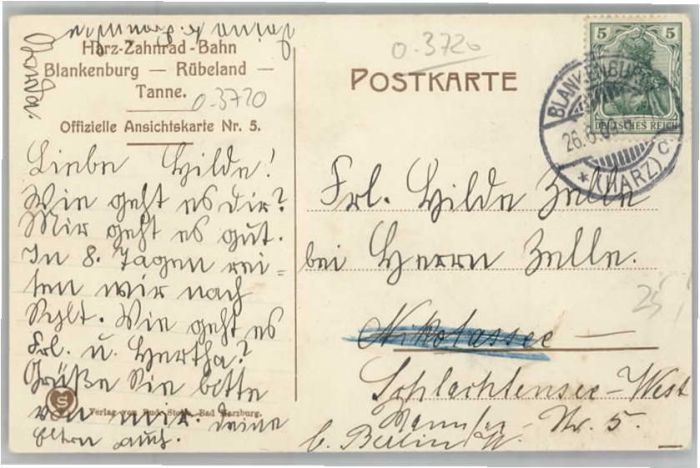 Harz-Zahnrad-Bahn
Blankenburg — Rübeland —
Tanne.
Offizielle Ansichtskarte Nr. 5.
Liebe Hilde!
Wie geht es dir?
Mir geht es gut.
In 8. Tagen rei-
ten wir nach
Sylt. Wie geht es
Frl. u. Hertha?
Grüße Sie bitte
von mir. Deine
Eltern auch.
Verlag von Rud. Stolle, Bad Harzburg.
0.3720
0.3720
POSTKARTE
5 5
DEUTSCHES REICH
BLANKENBURG
26.6.09
* (HARZ) c.
Frl. Hilde Zelle
bei Herrn Zelle.
Nikolassee —
Schlachtensee-West
Nr. 5.
b. Berlin W.
25